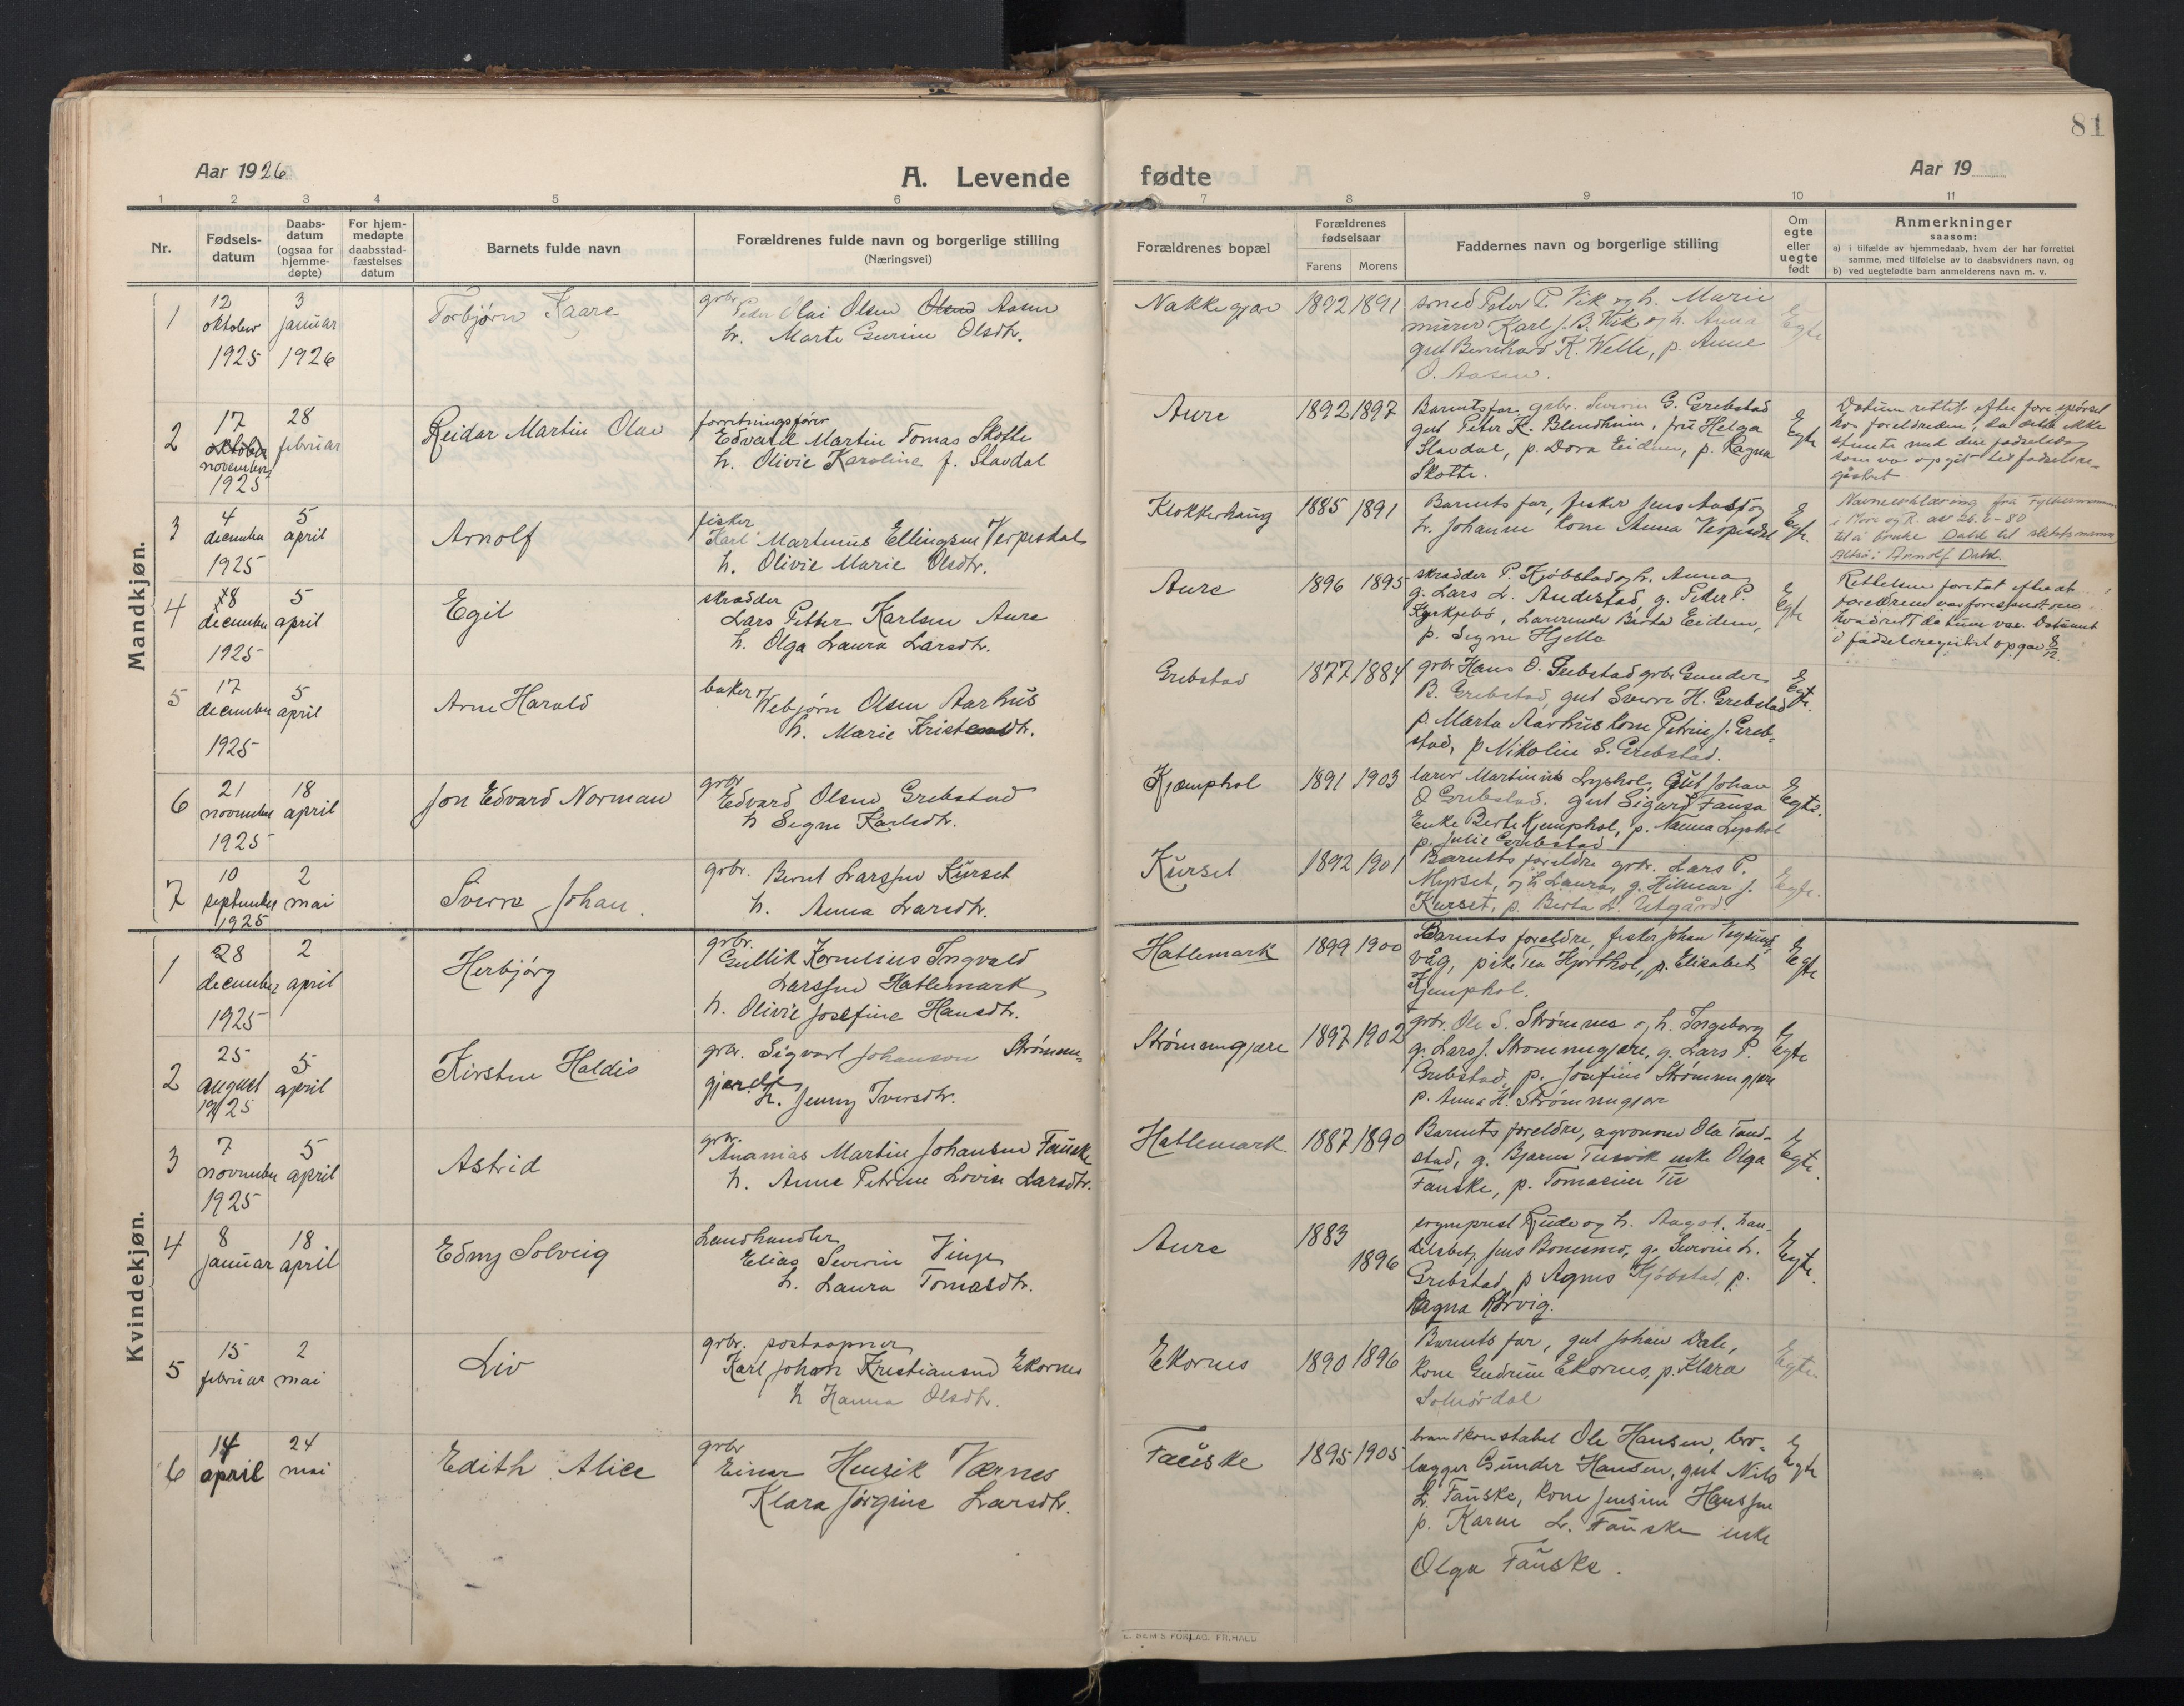 81
Aar 1926
A. Levende
fødte
Aar 19
1 2 3 4 5 6 7 8 9 10 11
Nr.
Fødsels-
datum
Daabs-
datum
(ogsaa for
hjemme-
døpte)
For hjem-
medøpte
daabsstad-
fæstelses
datum
Barnets fulde navn
Forældrenes fulde navn og borgerlige stilling
(Næringsvei)
Forældrenes bopæl
Forældrenes
fødselsaar
Farens Morens
Faddernes navn og borgerlige stilling
Om
egte
eller
uegte
født
Anmerkninger
saasom:
a) i tilfælde av hjemmedaab, hvem der har forrettet
samme, med tilføielse av to daabsvidners navn, og
b) ved uegtefødte barn anmelderens navn m. v.
Mandkjøn.
1
12
oktober
1925
3
januar
1926
Torbjørn Kaare
grbr.
Peder Olai Olsen Olsen Aasen
h. Marte Gurine Olsdtr.
Nakkegjære
1892 1891
smed Peter P. Vik og h. Marie
murer Karl J. B. Vik og h. Anna
gut Bernhard K. Velle, p. Anne
O. Aasen.
Egte
2
17
oktober
november
1925
28
februar
Reidar Martin Olav
forretningsfører
Edvard Martin Tomas Skotte
h. Olivie Karoline f. Slavdal
Aure
1892 1897
Barnets far, grbr. Severin G. Grebstad
gut Peter K. Blindheim, fru Helga
Slavdal, p. Dora Eidem, p. Ragna
Skotte.
Egte
Datum rettet efter forespørsel
hos foreldrene, da dette ikke
stemte med den fødselsdag
som var opgit til fødselsre-
gistret
3
4
december
1925
5
april
Arnolf
fisker
Karl Martinus Ellingsen Verpesdal
h. Olivie Marie Olsdtr.
Klokkerhaug
1885 1891
Barnets far, fisker Jens Aas og
h. Johanne kone Anna Verpesdal
Egte.
Navneerklæring fra Fylkesmannen
i Møre og R. av 26.6-80
til å bruke Dahl til slektsnavn
Altså: Arnolf Dahl.
4
8
december
1925
5
april
Egil
skrædder
Lars Petter Karlsen Aure
h. Olga Laura Larsdtr.
Aure
1896 1895
skrædder P. Kjøbstad og h. Anna
g. Lars L. Andestad g. Peter P.
Kyrkjebø, lærerinde Berta Eidem,
p. Signe Hjelle
Egte
Rettelsen foretat efter at
foreldrene var forespurt om
hvad rett datum var. Datumet
i fødselsregistret opgav 8/12.
5
17
december
1925
5
april
Arne Harald
baker
Webjørn Olsen Aarhus
h. Marie Kristensdtr.
Grebstad
1877 1884
grbr Hans O. Grebstad grbr Gunder
B. Grebstad, gut Sverre H. Grebstad
p. Marta Aarhus kone Petrine J. Greb-
stad, p Nikoline S. Grebstad.
Egte.
6
21
november
1925
18
april
Jon Edvard Norman
grbr
Edvard Olsen Grebstad
h Signe Karlsdtr.
Kjæmphol
1891 1903
lærer Martinus Lyshol, Gut Johan
O Grebstad. gut Sigurd Fausa
Enke Berte Kjemphol, p. Nanna Lyshol
p. Julie Grebstad
Egte.
7
10
september
1925
2
mai
Sverre Johan
grbr. Bernt Larssen Kurset
h. Anna Larsdtr.
Kurset
1892 1901
Barnets foreldre grbr. Lars P.
Myrset, og h Laura, g. Hilmar J.
Kurset, p. Berta L. Utgård.
Egte.
Kvindekjøn.
1
28
december
1925
2
april
Herbjørg
grbr.
Gullik Kornelius Ingvald
Larssen Hatlemark
h. Olivie Josefine Hansdtr.
Hatlemark
1899 1900
Barnets foreldre, fisker Johan
våg, pike Hjorthol, p. Elisabet
Kjemphol.
Egte
2
25
august
1925
5
april
Kirsten Haldis
grbr. Sigvart Johansen Strømme-
gjærde
h. Jenny Iversdtr.
Strømmegjære
1897 1902
grbr. Ole S. Strømnes og h. Ingeborg
g. Lars J. Strømmegjære, g. Lars P.
Grebstad, p. Josefine Strømmegjære
p. Anna H. Strømmegjære
Egte
3
7
november
1925
5
april
Astrid
grbr.
Ananias Martin Johansen Fauske
h. Anne Petrine Lovise Larsdtr.
Hatlemark.
1887 1890
Barnets foreldre, agronom Ola Tand-
stad, g. Bjarne Tusvik enke Olga
Fauske, p. Tomasine Tu
Egte.
4
8
januar
18
april
Edny Solveig
Landhandler
Elias Severin Vinje
h. Laura Tomasdtr.
Aure
1883
1896
sogneprest Rude og h. Aagot, han-
delsbetj Jens Bonesmo, g. Severin L.
Grebstad, p Agnes Kjøbstad, p.
Ragna Rørvig.
Egte.
5
15
februar
2
mai
Liv
grbr. postaapner
Karl Johan Kristiansen Ekornes
h Hanna Olsdtr.
Ekornes
1890 1896
Barnets far, gut Johan Dale,
kone Gudrun Ekornes, p. Klara
Solnørdal
Egte.
6
14
april
24
mai
Edith Alice
grbr
Einar Henrik Værnes
Klara Jørgine Larsdtr.
Fauske
1895 1905
brandkonstabel Ole Hansen, bro-
lægger Gunder Hansen, gut Nils
L. Fauske, kone Jensine Hanssen
p. Karen L. Fauske enke
Olga Fauske.
Egte
E. SEM'S FORLAG, FR.HALD